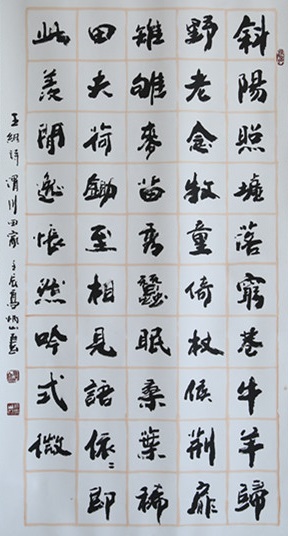 斜陽照墟落窮巷牛羊歸
野老念牧童倚杖候荆扉
雉雊麥苗秀蠶眠桑葉稀
田夫荷鋤至相見語依〻即
此羨閒逸悵然吟式微
王維詩 渭川田家 壬辰